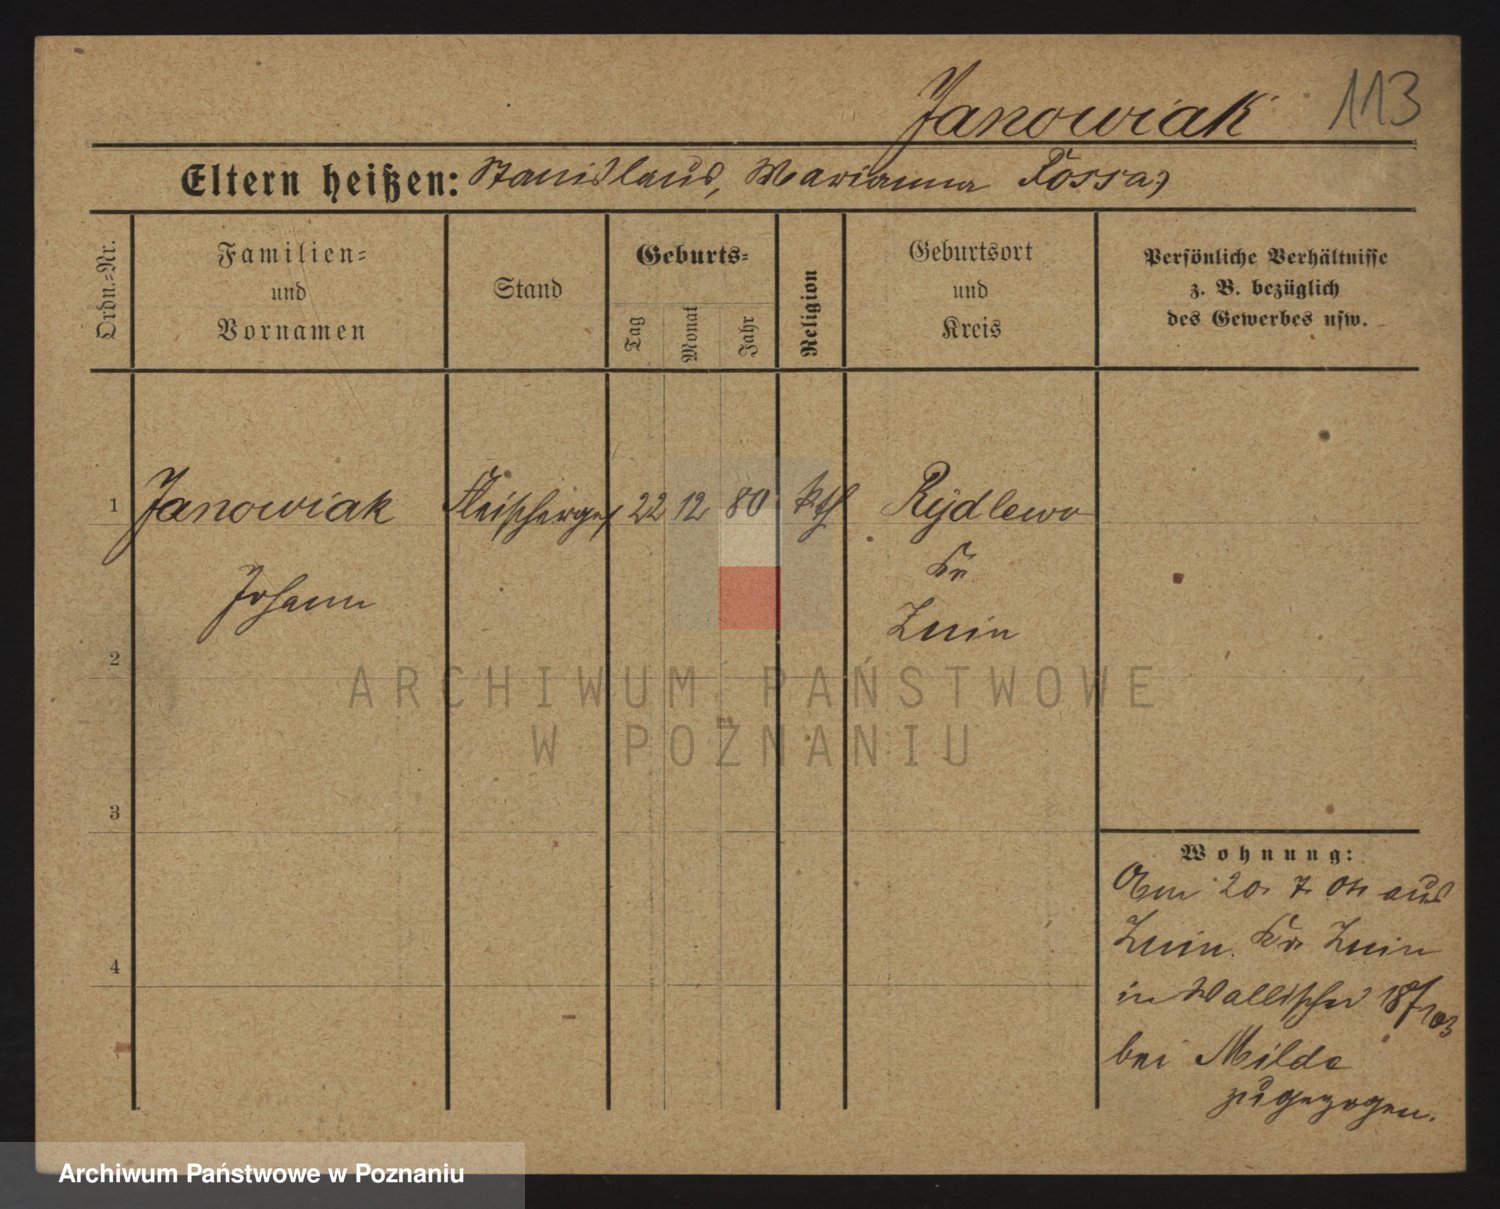 Janowiak 113
Eltern heißen: Stanislaus, Marianna Fossa)
Ordn.=Nr.
Familien=
und
Vornamen
Stand
Geburts=
Tag
Monat
Jahr
Religion
Geburtsort
und
Kreis
Persönliche Verhältnisse
z. B. bezüglich
des Gewerbes usw.
1 Janowiak Fleischerges 22 12 80 kth Rydlewo
Johann
Kr
Znin
2
3
4
Wohnung:
Am 20. 7. 04 aus
Znin. Kr. Znin
in Wallischei
bei Milde
zugezogen.
ARCHIWUM PAŃSTWOWE
W POZNANIU
Archiwum Państwowe w Poznaniu